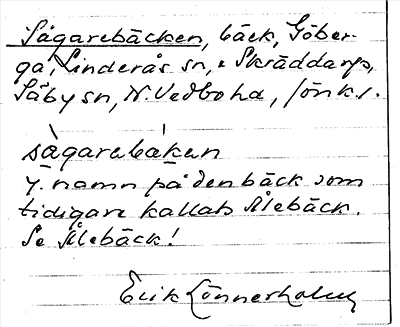 Sågarebäcken, bäck, Göber-
ga, Linderås sn, & Skräddarp,
Säby sn, N. Vedbo hd, Jönk. l.
sågarebäken
y. namn på den bäck som
tidigare kallats Ålebäck.
Se Ålebäck!
Erik Lönnerholm